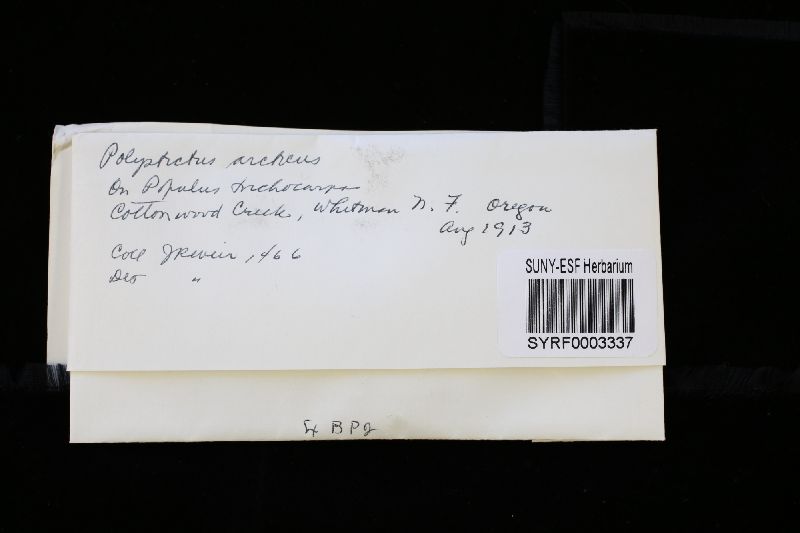 Polystictus arcticus
On Populus trichocarpa
Cottonwood Creek, Whitman N. F. Oregon
Aug 1913
Coll JRWeir, 1466
Det "
SUNY-ESF Herbarium
SYRF0003337
Ex BPI